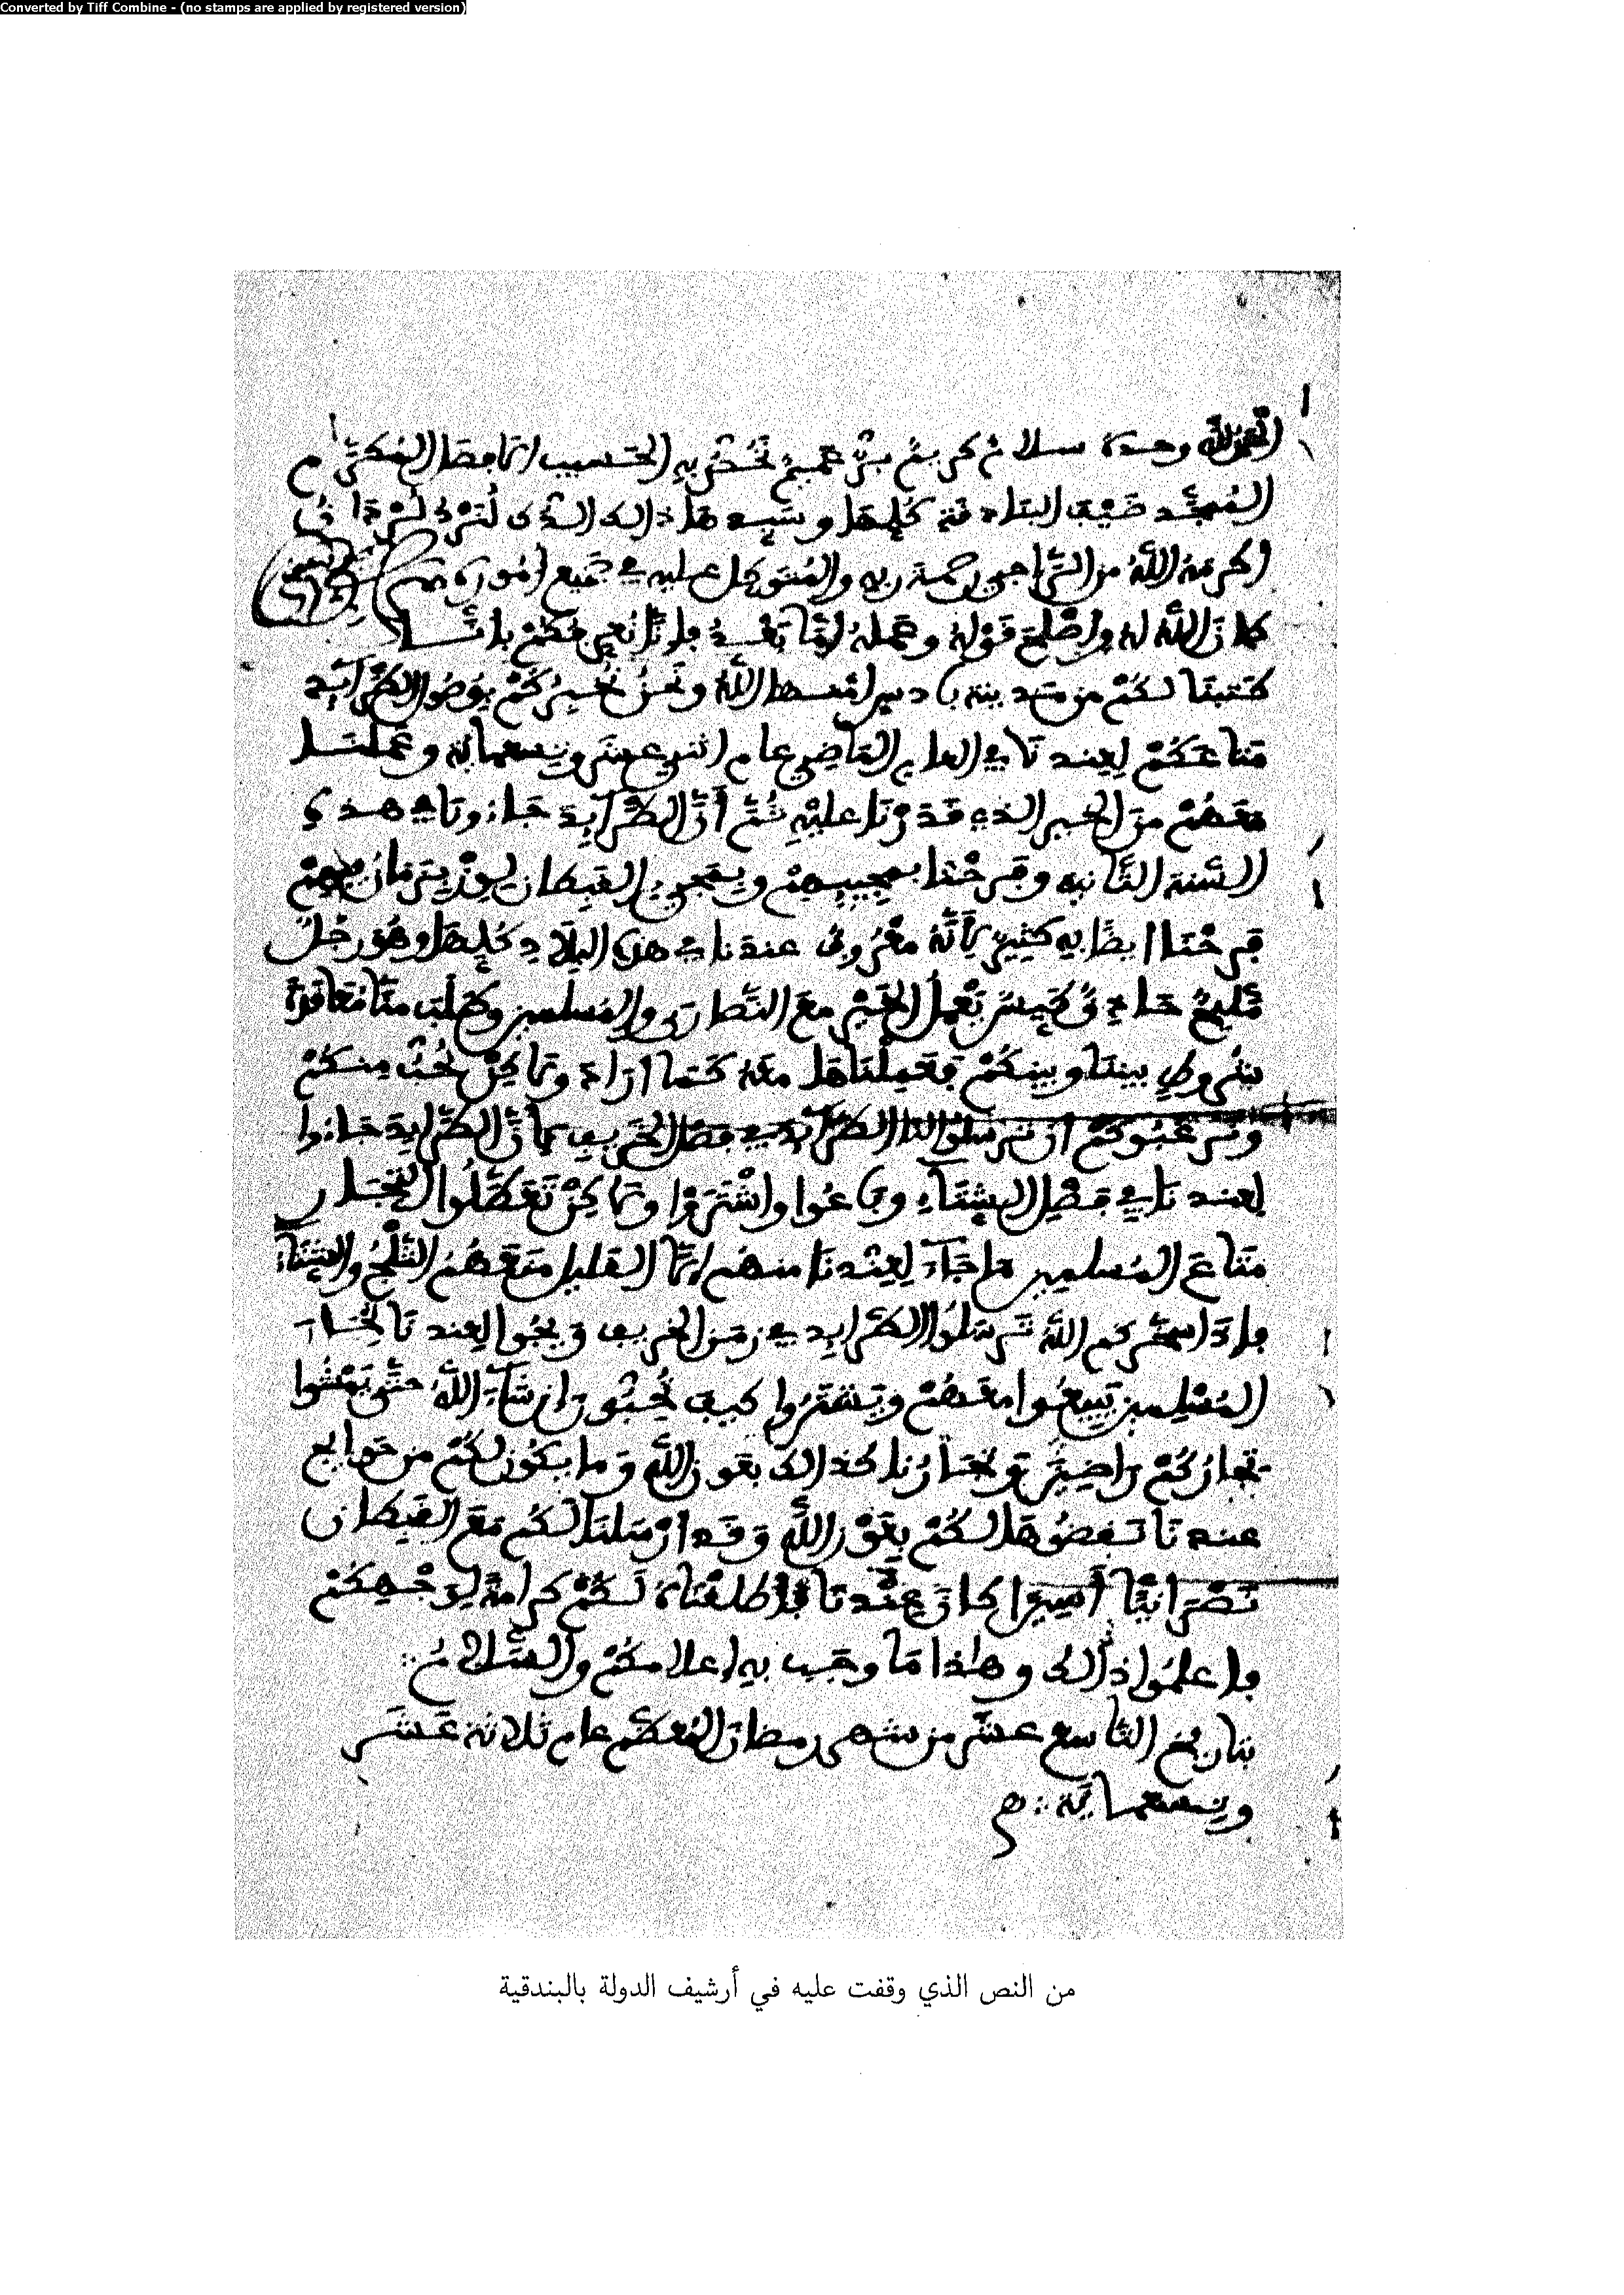 Converted by Tiff Combine - (no stamps are applied by registered version)
الحمد لله وحده سلام كريم بر عميم نخص به الحسيب الأفضل المكرم
المجد ضيف البنادقة كلها وسيد هذالك الذي
اكرمه الله من الراجي رحمة ربه والمتوكل عليه في جميع أموره
كان الله له وأصلح قوله وعمله أما بعد فإنا نعرفكم بأننا
كتبنا لكم من مدينة بادس أمنها الله ونحن نخبركم بوصول الطرايد
متاعكم لعندنا في العام الماضي عام اثني عشر وتسعمائة وعملنا
معهم من الخير الذي قدرنا عليه ثم أن الطرايد جاءونا في هذي
السنة الثانية وفرحنا بمجيبهم وبمجي القبطان
فرحنا ايضا به كثير لأنه معروف عندنا في هذه البلاد كلها وهو رجل
مليح حاذق كيس يعمل الخير مع النصارى والمسلمين وطلب منا معاقدة
شروط بيننا وبينكم فعملناها معه كما أراد ولاكن نحب منكم
ونرغبوكم أن ترسلوا لنا الطرايد في فصل الخريف لأن الطرايد جاءوا
لعندنا في فصل الشتاء وباعوا واشتروا ولاكن تعطلوا التجار
متاع المسلمين ما جاء لعندنا منهم إلا القليل منعهم الثلج والشتاء
فإذا سخركم الله ترسلوا الطرايد في زمن الخريف ويجوا لعندنا تجار
المسلمين يبيعوا معهم ويشتروا كيف يحبون إن شاء الله حتى يمشوا
تجاركم راضين وتجارنا كذالك بعون الله وما يكون لكم من حوايج
عندنا نقضوها لكم بعون الله وقد ارسلنا لكم مع القبطان
نصرانيا أسيرا كان عندنا فأطلقناه لكم كرامة لوجهكم
فاعلموا ذالك وهاذا ما وجب به إعلامكم والسلام
بتاريخ التاسع عشر من شهر رمضان المعظم عام ثلاثة عشر
وتسعماية
من النص الذي وقفت عليه في أرشيف الدولة بالبندقية